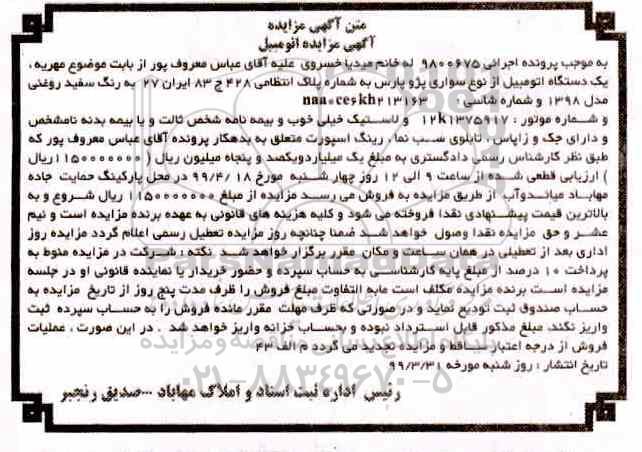 متن آگهی مزایده
آگهی مزایده اتومبیل
به موجب پرونده اجرائی ۹۸۰۰۶۷۵ له خانم میدیا خسروی علیه آقای عباس معروف پور از بابت موضوع مهریه ،
یک دستگاه اتومبیل از نوع سواری پژو پارس به شماره پلاک انتظامی ۴۲۸ ج ۸۳ ایران ۲۷ به رنگ سفید روغنی
مدل ۱۳۹۸ و شماره شاسی : naan01ce6kh213163
و شماره موتور : 124k1375917 و لاستیک خیلی خوب و بیمه نامه شخص ثالث و یا بیمه بدنه نامشخص
و دارای جک و زاپاس ، تابلوی شب نما، رینگ اسپورت متعلق به بدهکار پرونده آقای عباس معروف پور که
طبق نظر کارشناس رسمی دادگستری به مبلغ یک میلیاردویکصد و پنجاه میلیون ریال ( ۱۱۵۰۰۰۰۰۰۰ریال
) ارزیابی قطعی شده از ساعت ۹ الی ۱۲ روز چهار شنبه مورخ ۹۹/۴/۱۸ در محل پارکینگ حمایت جاده
مهاباد میاندوآب از طریق مزایده به فروش می رسد مزایده از مبلغ ۱۱۵۰۰۰۰۰۰۰ ریال شروع و به
بالاترین قیمت پیشنهادی نقدا فروخته می شود و کلیه هزینه های قانونی به عهده برنده مزایده است و نیم
عشر و حق مزایده نقدا وصول خواهد شد ضمنا چنانچه روز مزایده تعطیل رسمی اعلام گردد مزایده روز
اداری بعد از تعطیلی در همان ساعت و مکان مقرر برگزار خواهد شد نکته : شرکت در مزایده منوط به
پرداخت ۱۰ درصد از مبلغ پایه کارشناسی به حساب سپرده و حضور خریدار یا نماینده قانونی او در جلسه
مزایده است برنده مزایده مکلف است مابه التفاوت مبلغ فروش را ظرف مدت پنج روز از تاریخ مزایده به
حساب صندوق ثبت تودیع نماید و در صورتی که ظرف مهلت مقرر مانده فروش را به حساب سپرده ثبت
واریز نکند، مبلغ مذکور قابل استرداد نبوده و بحساب خزانه واریز خواهد شد . در این صورت ، عملیات
فروش از درجه اعتبار ساقط و مزایده تجدید می گردد م الف ۴۳
تاریخ انتشار : روز شنبه مورخه ۹۹/۳/۳۱
۰۲۱-۸۸۳۴۹۶۷۰-۵
رئیس اداره ثبت اسناد و املاک مهاباد ...صدیق رنجبر